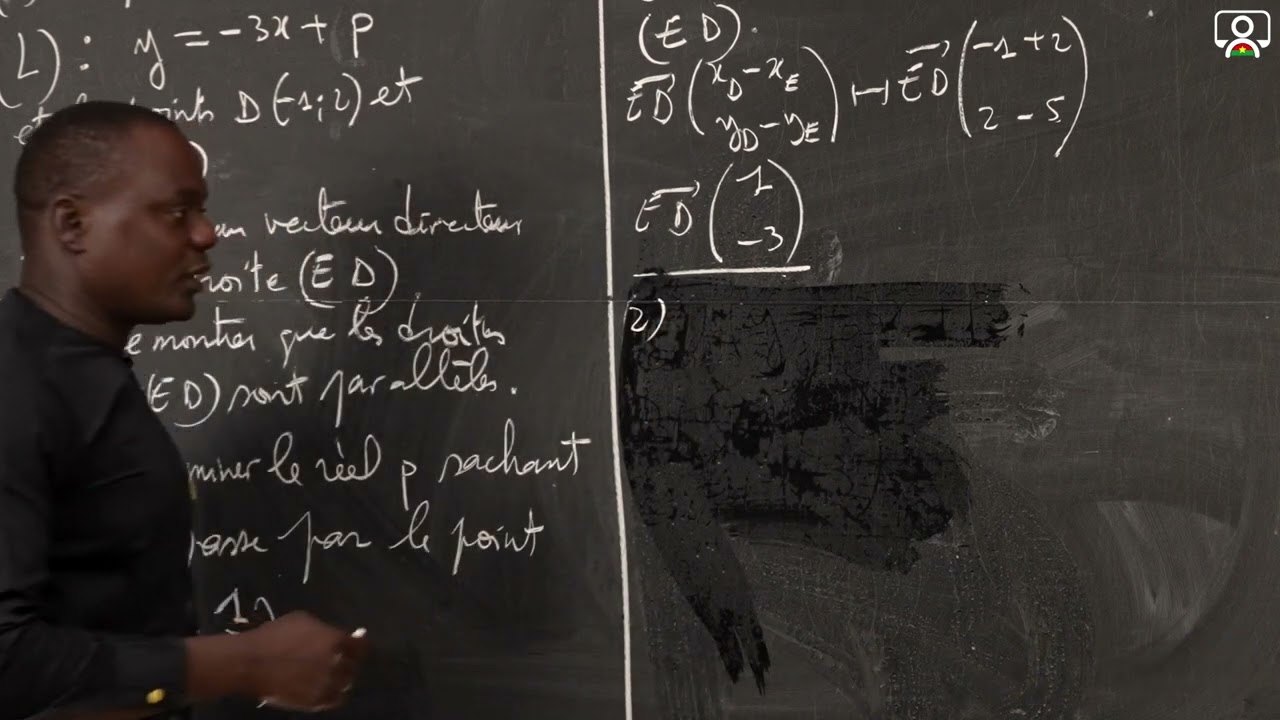 L) : y = -3x + p
points D(-1; 2) et
vecteur directeur
(ED)
montrer que les droites
(ED) sont parallèles.
miner le réel p sachant
passe par le point
(ED).
ED→ (x_D - x_E ; y_D - y_E) ↦ ED→ (-1 + 2 ; 2 - 5)
ED→ (1 ; -3)
2)